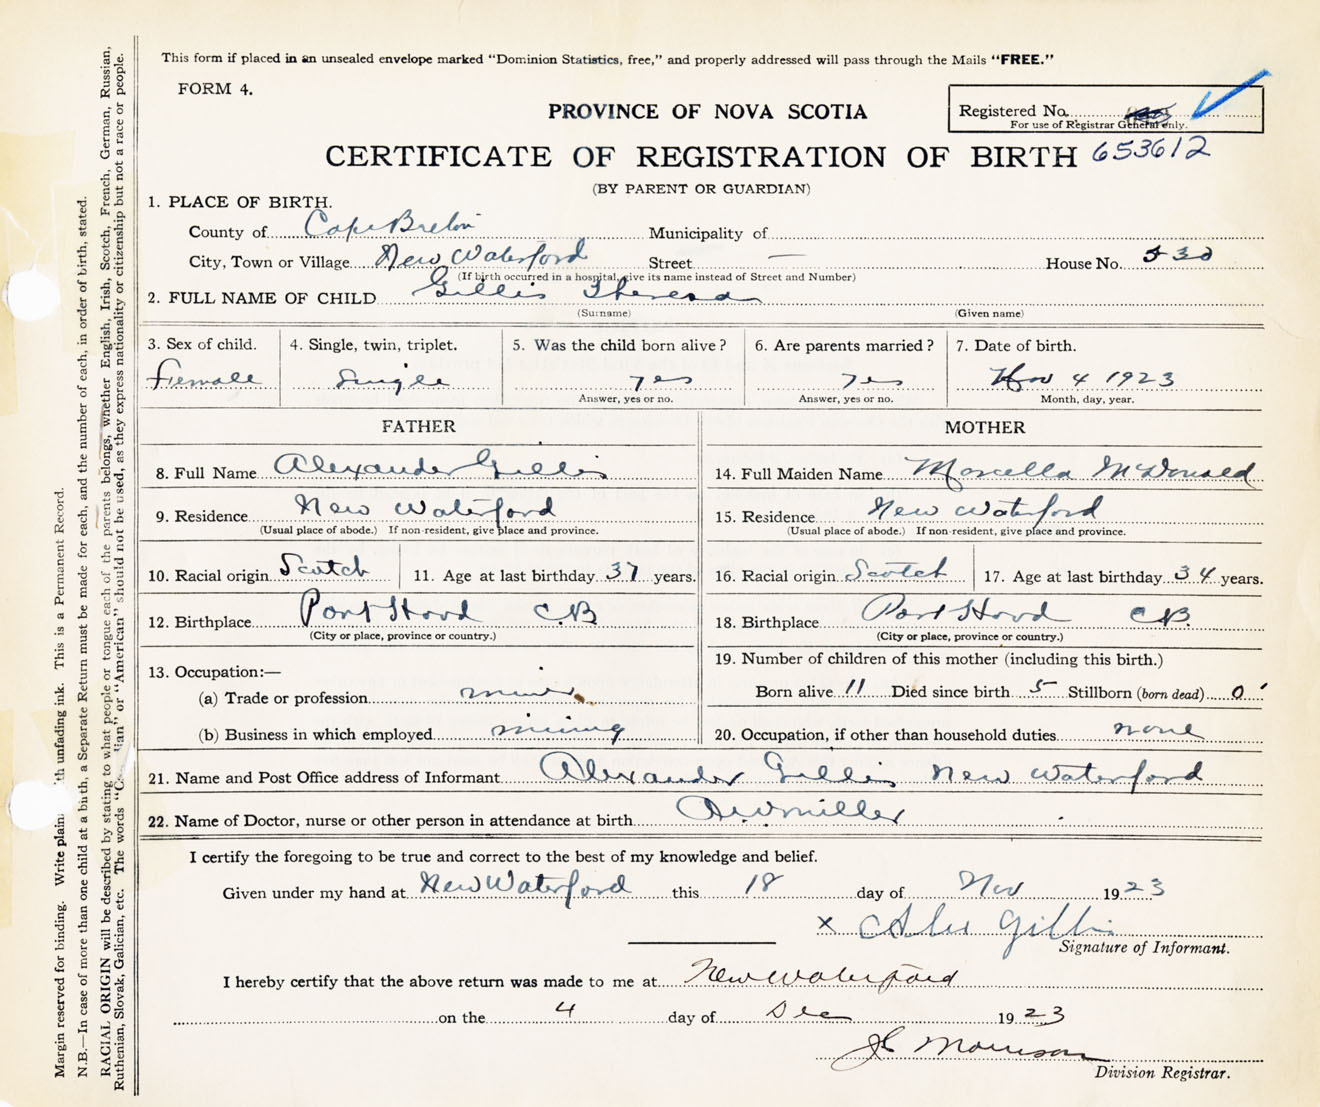 This form if placed in an unsealed envelope marked “Dominion Statistics, free,” and properly addressed will pass through the Mails “FREE.”
FORM 4.
PROVINCE OF NOVA SCOTIA
Registered No.
For use of Registrar General only.
CERTIFICATE OF REGISTRATION OF BIRTH 653612
(BY PARENT OR GUARDIAN)
1. PLACE OF BIRTH.
County of Cape Breton Municipality of
City, Town or Village New Waterford Street — House No. 530
(If birth occurred in a hospital, give its name instead of Street and Number)
2. FULL NAME OF CHILD Gillis Theresa
(Surname) (Given name)
3. Sex of child. 4. Single, twin, triplet. 5. Was the child born alive? 6. Are parents married? 7. Date of birth.
Female Single yes yes Nov 4 1923
Answer, yes or no. Answer, yes or no. Month, day, year.
FATHER MOTHER
8. Full Name Alexander Gillis 14. Full Maiden Name Marcella McDonald
9. Residence New Waterford 15. Residence New Waterford
(Usual place of abode.) If non-resident, give place and province. (Usual place of abode.) If non-resident, give place and province.
10. Racial origin Scotch 11. Age at last birthday 37 years. 16. Racial origin Scotch 17. Age at last birthday 34 years.
12. Birthplace Port Hood C.B. 18. Birthplace Port Hood C.B.
(City or place, province or country.) (City or place, province or country.)
13. Occupation:— 19. Number of children of this mother (including this birth.)
(a) Trade or profession miner Born alive 11 Died since birth 5 Stillborn (born dead) 0
(b) Business in which employed mining 20. Occupation, if other than household duties none
21. Name and Post Office address of Informant Alexander Gillis New Waterford
22. Name of Doctor, nurse or other person in attendance at birth Miller
I certify the foregoing to be true and correct to the best of my knowledge and belief.
Given under my hand at New Waterford this 18 day of Nov 1923
x Alex Gillis
Signature of Informant.
I hereby certify that the above return was made to me at New Waterford
on the 4 day of Dec 1923
Morrison
Division Registrar.
Margin reserved for binding. Write plain th unfading ink. This is a Permanent Record.
N.B.—In case of more than one child at a birth, a Separate Return must be made for each, and the number of each, in order of birth, stated.
RACIAL ORIGIN will be described by stating to what people or tongue each of the parents belongs, whether English, Irish, Scotch, French, German, Russian,
Ruthenian, Slovak, Galician, etc. The words “C ian” or “American” should not be used, as they express nationality or citizenship but not a race or people.